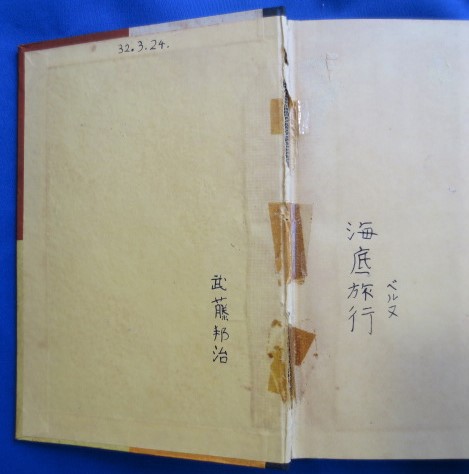 32.3.24.
武藤邦治
海底旅行
ベルヌ